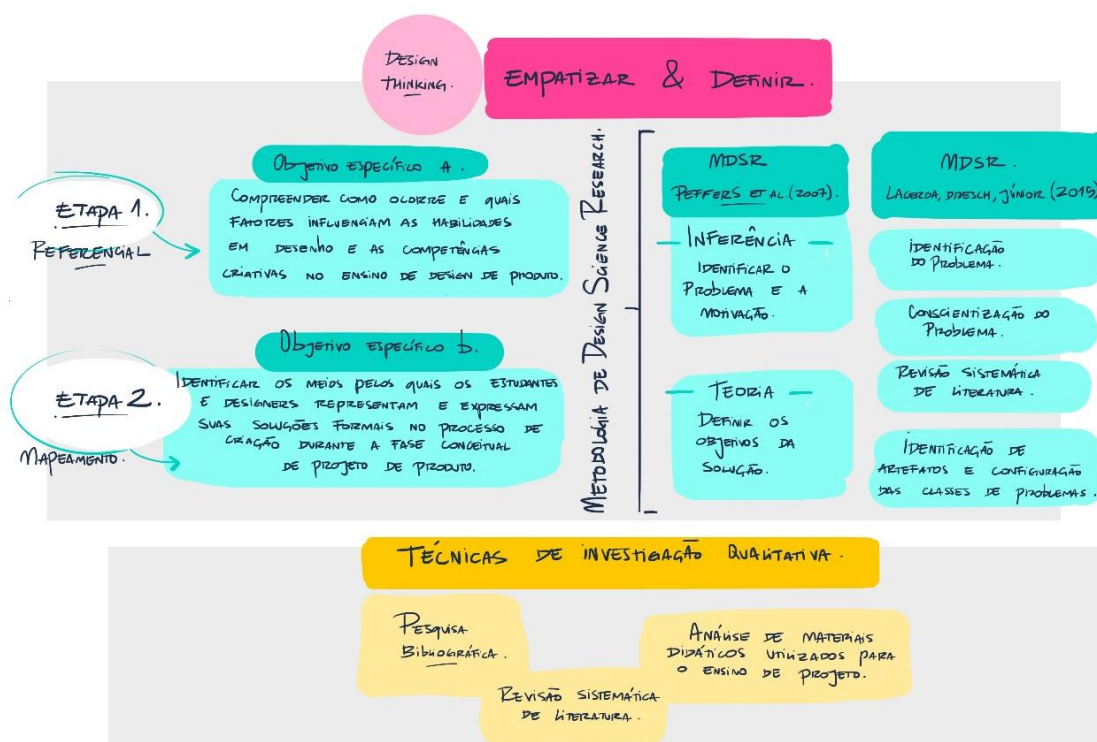 DESIGN
THINKING.
EMPATIZAR & DEFINIR.
ETAPA 1.
REFERENCIAL
Objetivo ESPECÍFICO a.
COMPREENDER COMO OCORRE E QUAIS
FATORES INFLUENCIAM AS HABILIDADES
EM DESENHO E AS COMPETÊNCIAS
CRIATIVAS NO ENSINO DE DESIGN DE PRODUTO.
ETAPA 2.
MAPEAMENTO.
Objetivo ESPECÍFICO b.
IDENTIFICAR OS MEIOS PELOS QUAIS OS ESTUDANTES
E DESIGNERS REPRESENTAM E EXPRESSAM
SUAS SOLUÇÕES FORMAIS NO PROCESSO DE
CRIAÇÃO DURANTE A FASE CONCEITUAL
DE PROJETO DE PRODUTO.
METODOLOGIA DE DESIGN SCIENCE RESEARCH.
MDSR
PEFFERS ET AL. (2007).
INFERÊNCIA
IDENTIFICAR O
PROBLEMA E A
MOTIVAÇÃO.
TEORIA
DEFINIR OS
OBJETIVOS DA
SOLUÇÃO.
MDSR.
LACERDA, DRESCH, JÚNIOR (2015)
IDENTIFICAÇÃO
DO PROBLEMA.
CONSCIENTIZAÇÃO DO
PROBLEMA.
REVISÃO SISTEMÁTICA
DE LITERATURA.
IDENTIFICAÇÃO DE
ARTEFATOS E CONFIGURAÇÃO
DAS CLASSES DE PROBLEMAS.
TÉCNICAS DE INVESTIGAÇÃO QUALITATIVA.
PESQUISA
BIBLIOGRÁFICA.
REVISÃO SISTEMÁTICA
DE LITERATURA.
ANÁLISE DE MATERIAIS
DIDÁTICOS UTILIZADOS PARA
O ENSINO DE PROJETO.